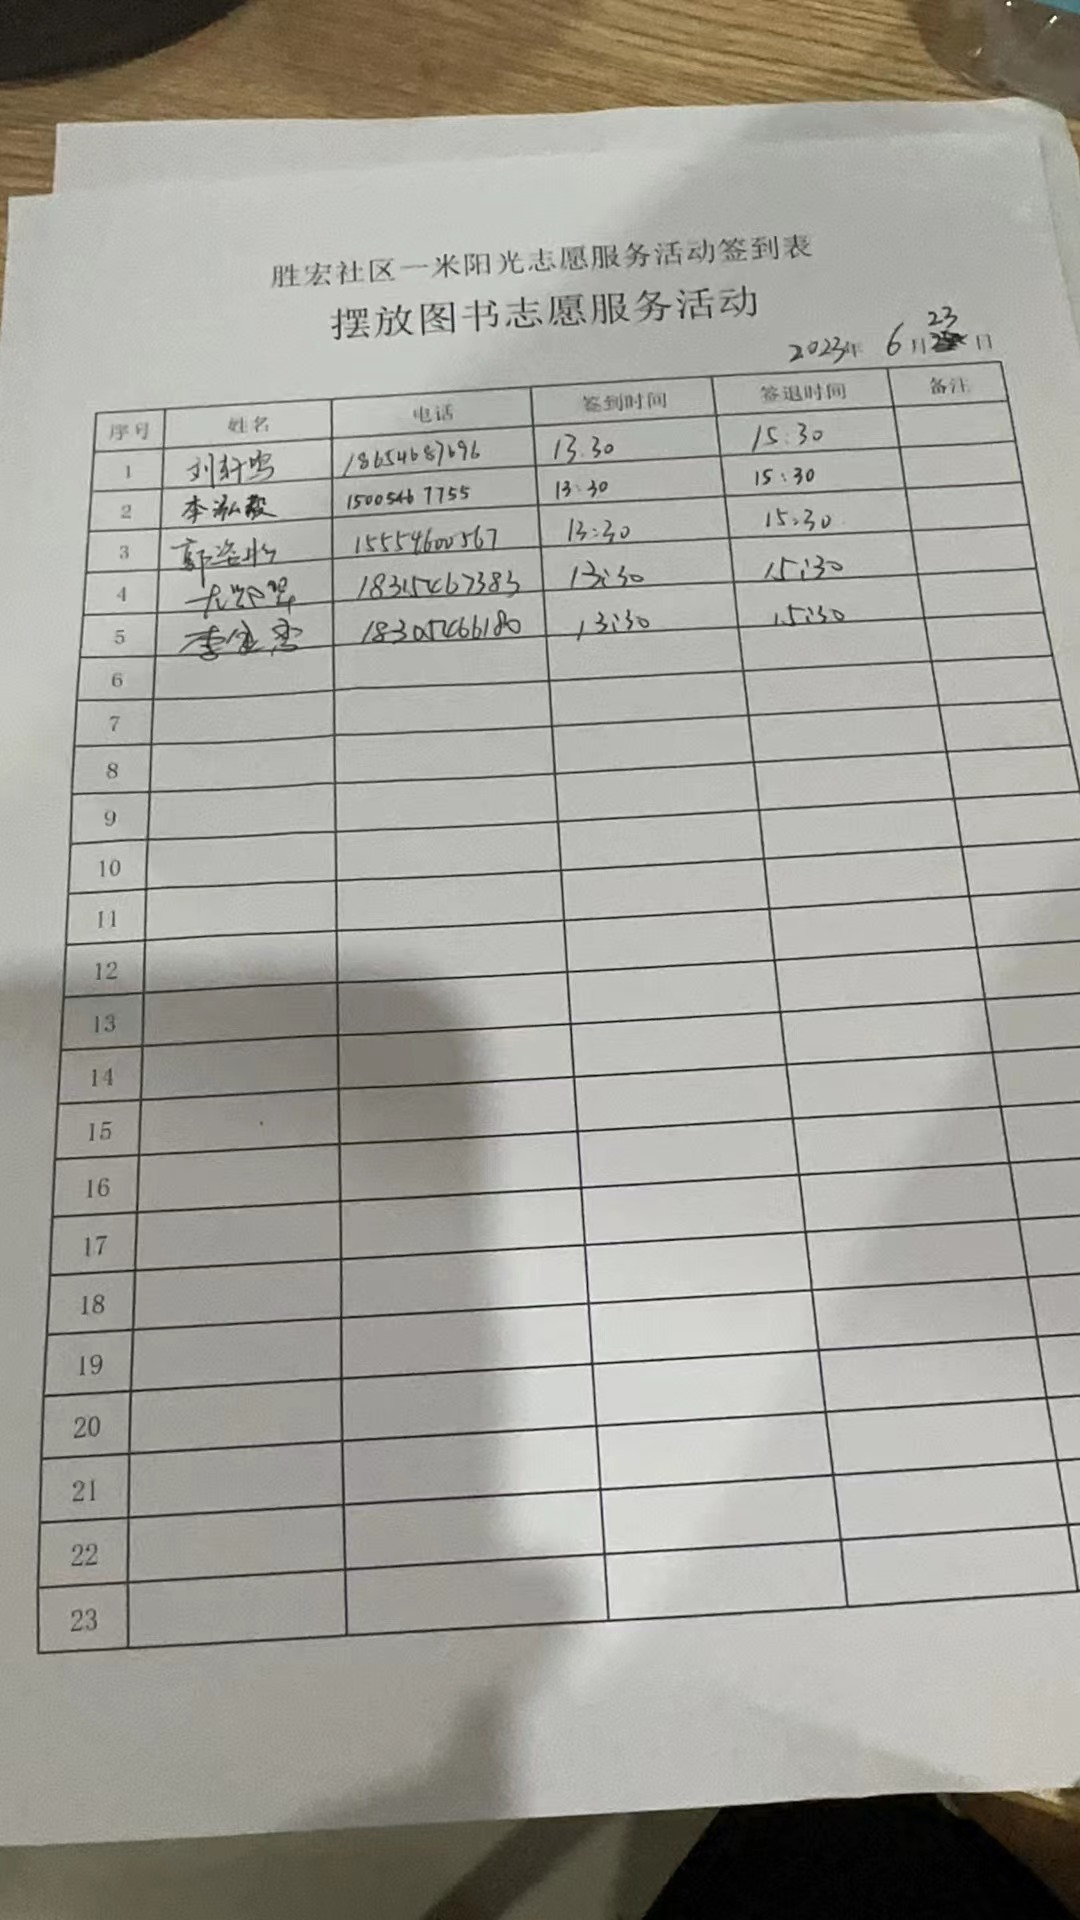 胜宏社区一米阳光志愿服务活动签到表
摆放图书志愿服务活动
2023年 6月23日
序号 姓名 电话 签到时间 签退时间 备注
1 刘轩鸣 18654687696 13:30 15:30
2 李泓毅 15005467755 13:30 15:30
3 郭 15554600567 13:30 15:30
4 18315467383 13:30 15:30
5 李 18305466180 13:30 15:30
6
7
8
9
10
11
12
13
14
15
16
17
18
19
20
21
22
23